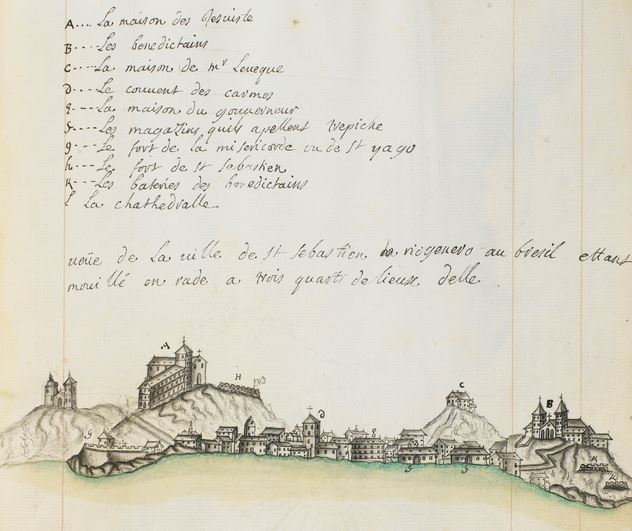 A... La maison des Jesuiste
B... Les benedictains
C... La maison de mr Leveque
D... Le couvent des carmes
E--- La maison du gouverneur
f--- Les magazins quils apellent trepiche
g... Le fort de la misericorde ou de St yago
h... Le fort de St sebastien
K... Les bateries des benedictains
l La chathedralle
veüe de La ville de St sebastien, riogenero au bresil ettant
mouillé en rade a trois quart de lieux delle
A
H
C
D
B
g
K